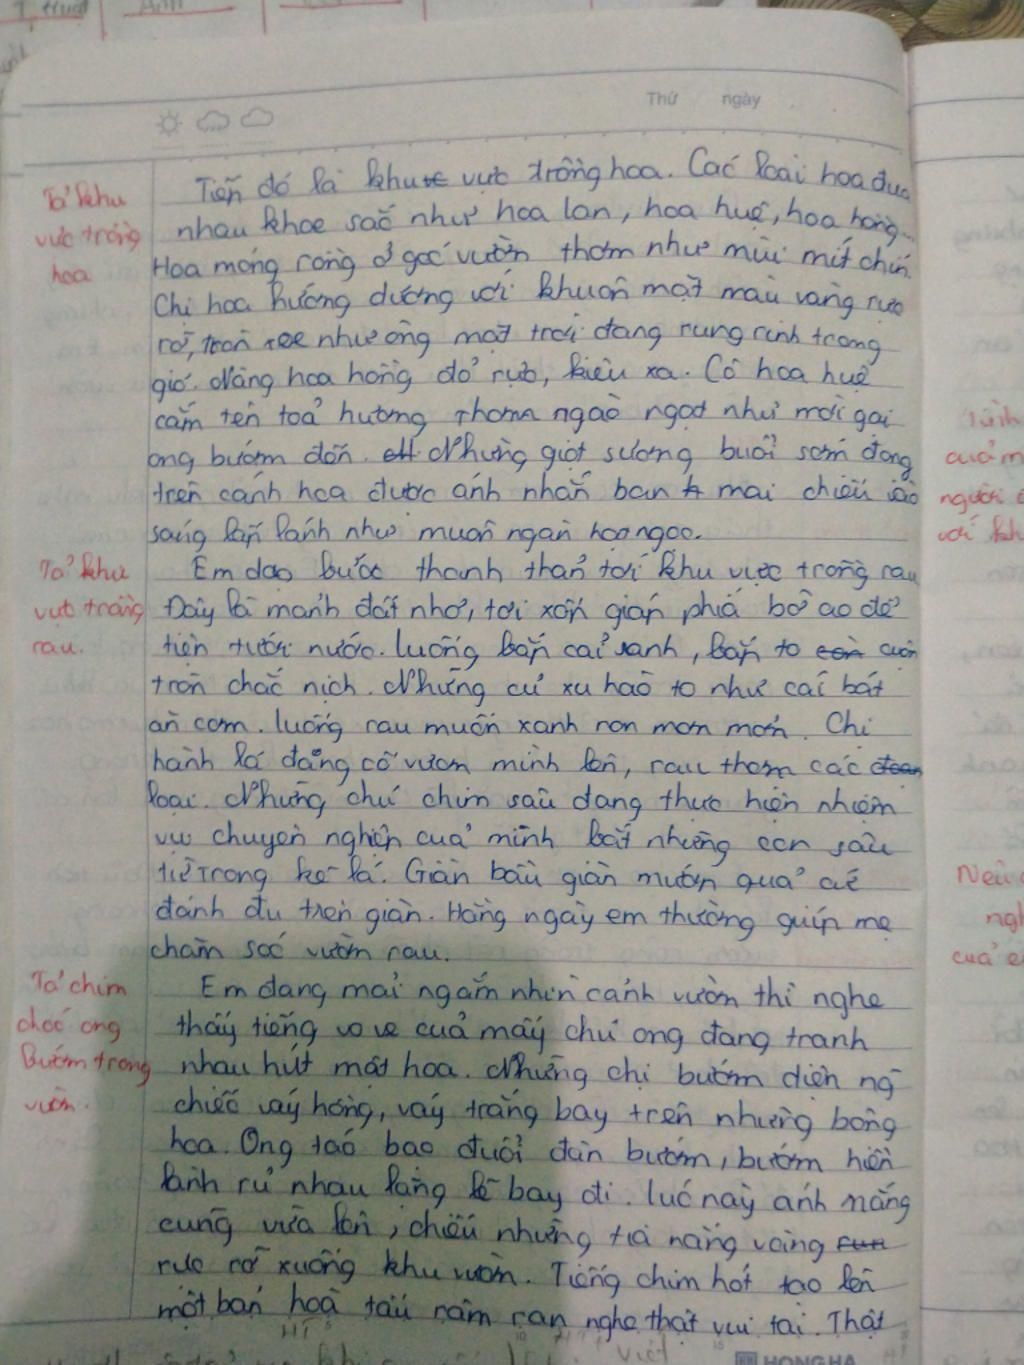 Thứ ngày
Tiếp đó là khu vực trồng hoa. Các loài hoa đua
nhau khoe sắc như hoa lan, hoa huệ, hoa hồng...
Hoa móng rồng ở góc vườn thơm như mùi mít chín.
Chị hoa hướng dương với khuôn mặt màu vàng rực
rỡ, như ông mặt trời đang rung rinh trong
gió. Nàng hoa hồng đỏ rực, kiêu xa. Cô hoa huệ
cắm tên toả hương thơm ngào ngạt như mời gọi
ong bướm đến. Những giọt sương buổi sớm đọng
trên cánh hoa được ánh nhắn ban mai chiếu vào
sáng lấp lánh như muôn ngàn hòn ngọc.
Em dạo bước thanh thản tới khu vực trồng rau
Đây là mảnh đất nhỏ, tơi xốp giáp phía bờ ao để
tiện tưới nước. luống bắp cải xanh, bắp to cuộn
tròn chắc nịch. Những củ xu hào to như cái bát
ăn cơm. luống rau muốn xanh non mơn mởn. Chị
hành lá đang cố vươn mình lên, rau thơm các
loại. Những chú chim sâu đang thực hiện nhiệm
vụ chuyên nghiệp của mình bắt những con sâu
từ trong kẽ lá. Giàn bầu giàn mướp quả
đánh đu trên giàn. Hàng ngày em thường giúp mẹ
chăm sóc vườn rau.
Em đang mải ngắm nhìn cảnh vườn thì nghe
thấy tiếng vo ve của mấy chú ong đang tranh
nhau hút mật hoa. Những chị bướm diện
chiếc váy hồng, váy trắng bay trên những bông
hoa. Ong táo bạo đuổi đàn bướm, bướm hiền
lành rủ nhau lặng lẽ bay đi. lúc này ánh nắng
cũng vừa lên, chiếu những tia nắng vàng
rực rỡ xuống khu vườn. Tiếng chim hót tạo lên
một bản hoà tấu râm ran nghe thật vui tai. Thật
Tả khu
vực trồng
hoa
Tả khu
vực trồng
rau.
Tả chim
chóc ong
bướm trong
vườn.
của m
người
với kh
Nêu
ngh
của e
HONG HA